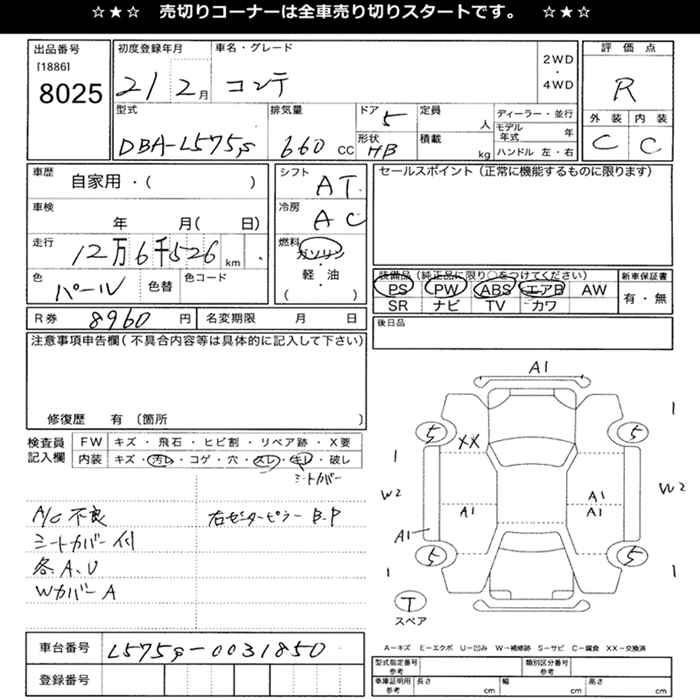 ☆★☆ 売切りコーナーは全車売り切りスタートです。 ☆★☆
出品番号
[1886]
8025
初度登録年月
21 2月
車名・グレード
コンテ
2WD
・
4WD
評価点
R
外装 内装
C C
型式
DBA-L575S
排気量
660 CC
ドア 5
形状 HB
定員 人
積載 kg
ディーラー・並行
モデル年式 年
ハンドル 左・右
車歴 自家用・( )
車検 年 月( 日)
走行 12万6千526 km
色 パール 色替 色コード
シフト AT
冷房 AC
燃料 ガソリン
・
軽・油
( )
セールスポイント(正常に機能するものに限ります)
装備品(純正品に限り○をつけてください)
PS PW ABS エアB AW
SR ナビ TV カワ
新車保証書
有・無
R券 8960 円 名変期限 月 日
後日品
注意事項申告欄(不具合内容等は具体的に記入して下さい)
修復歴 有 〔箇所 〕
検査員記入欄
FW キズ・飛石・ヒビ割・リペア跡・X要
内装 キズ・汚レ・コゲ・穴・スレ・キレ・破レ
シートカバー
A/C 不良 右センターピラー B.P
シートカバー付
各A.U
WカバーA
A1
5 5
XX
1 1
W2 W2
A1 A1
A1
A1
5 5
1 1
T
スペア
車台番号 L575S-0031850
登録番号
A-キズ E-エクボ U-凹み W-補修跡 S-サビ C-腐食 XX-交換済
型式指定番号 参考 類別区分番号 参考
車庫証明用 参考 長さ cm 幅 cm 高さ cm